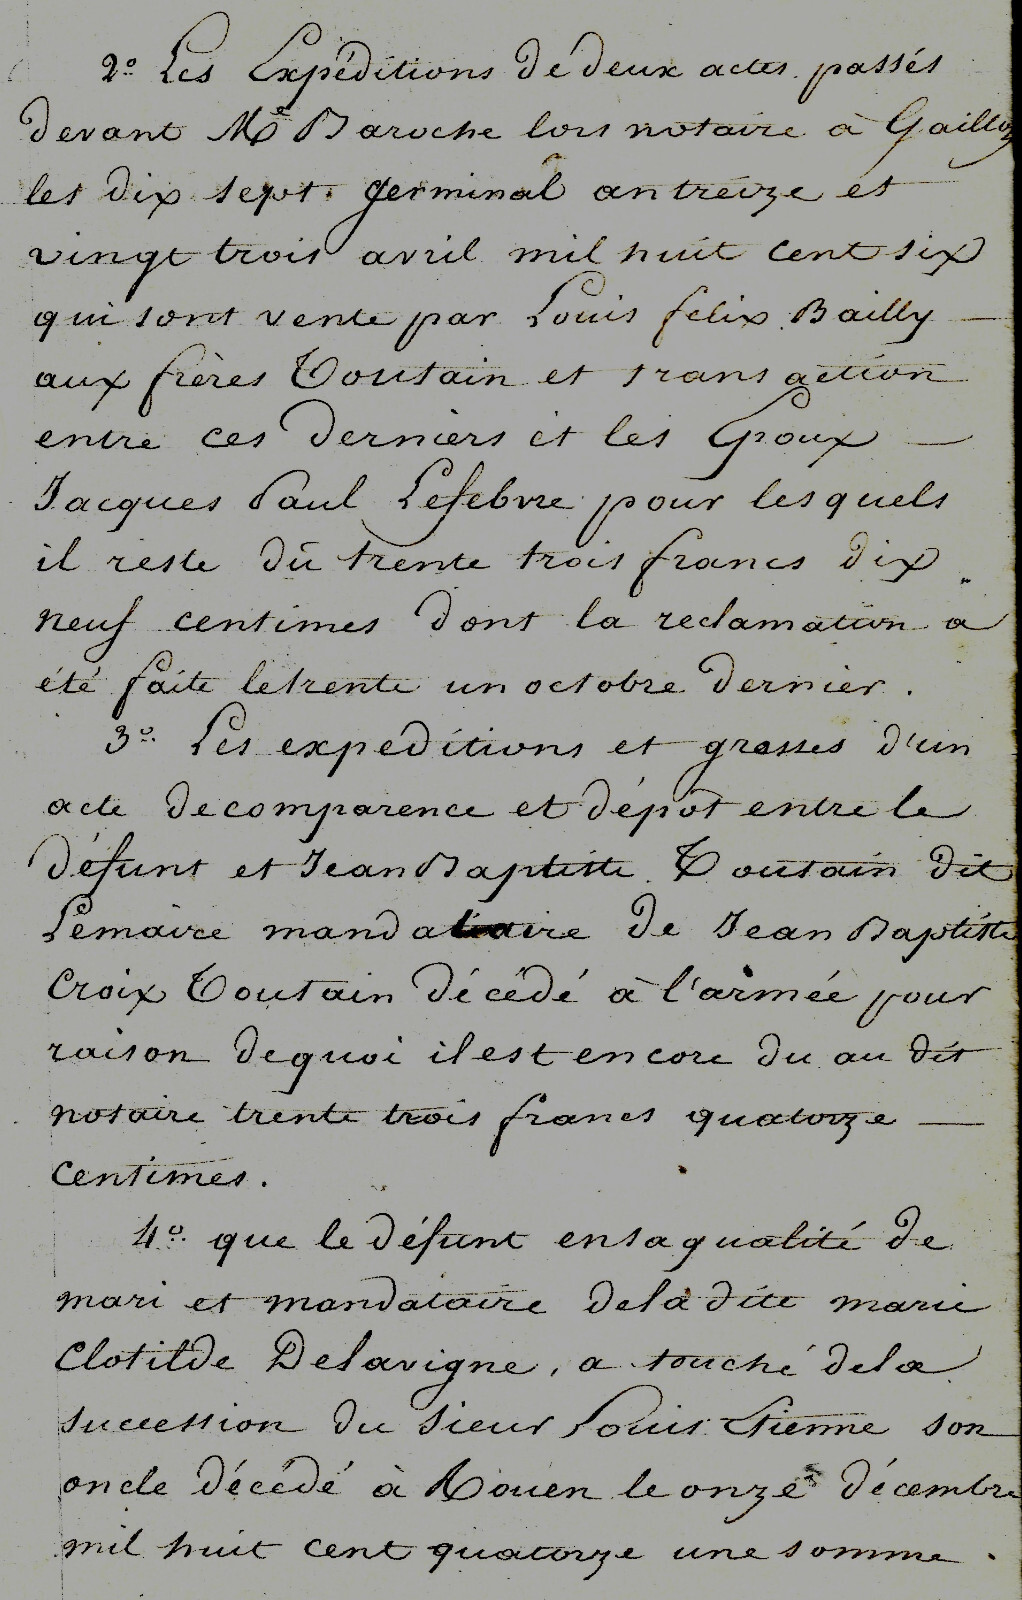 2º Les Expéditions de deux actes passés
devant Me Baroche lors notaire à Gaillon
les dix sept germinal an treize et
vingt trois avril mil huit cent six
qui sont vente par Louis felix Bailly —
aux frères Toutain et transaction
entre ces derniers et les Epoux —
Jacques Paul Lefebvre pour lesquels
il reste dû trente trois francs dix
neuf centimes dont la reclamation a
été faite le trente un octobre dernier.
3º. Les expeditions et grosses d'un
acte de comparence et dépôt entre le
défunt et Jean Baptiste Toutain dit
Lemaire mandataire de Jean Baptiste
Croix Toutain décédé à l'armée pour
raison de quoi il est encore du au dit
notaire trente trois francs quatorze —
centimes.
4º. que le défunt en sa qualité de
mari et mandataire de la dite marie
Clotilde Delavigne, a touché de la
succession du sieur Louis Etienne son
oncle décédé à Rouen le onze décembre
mil huit cent quatorze une somme